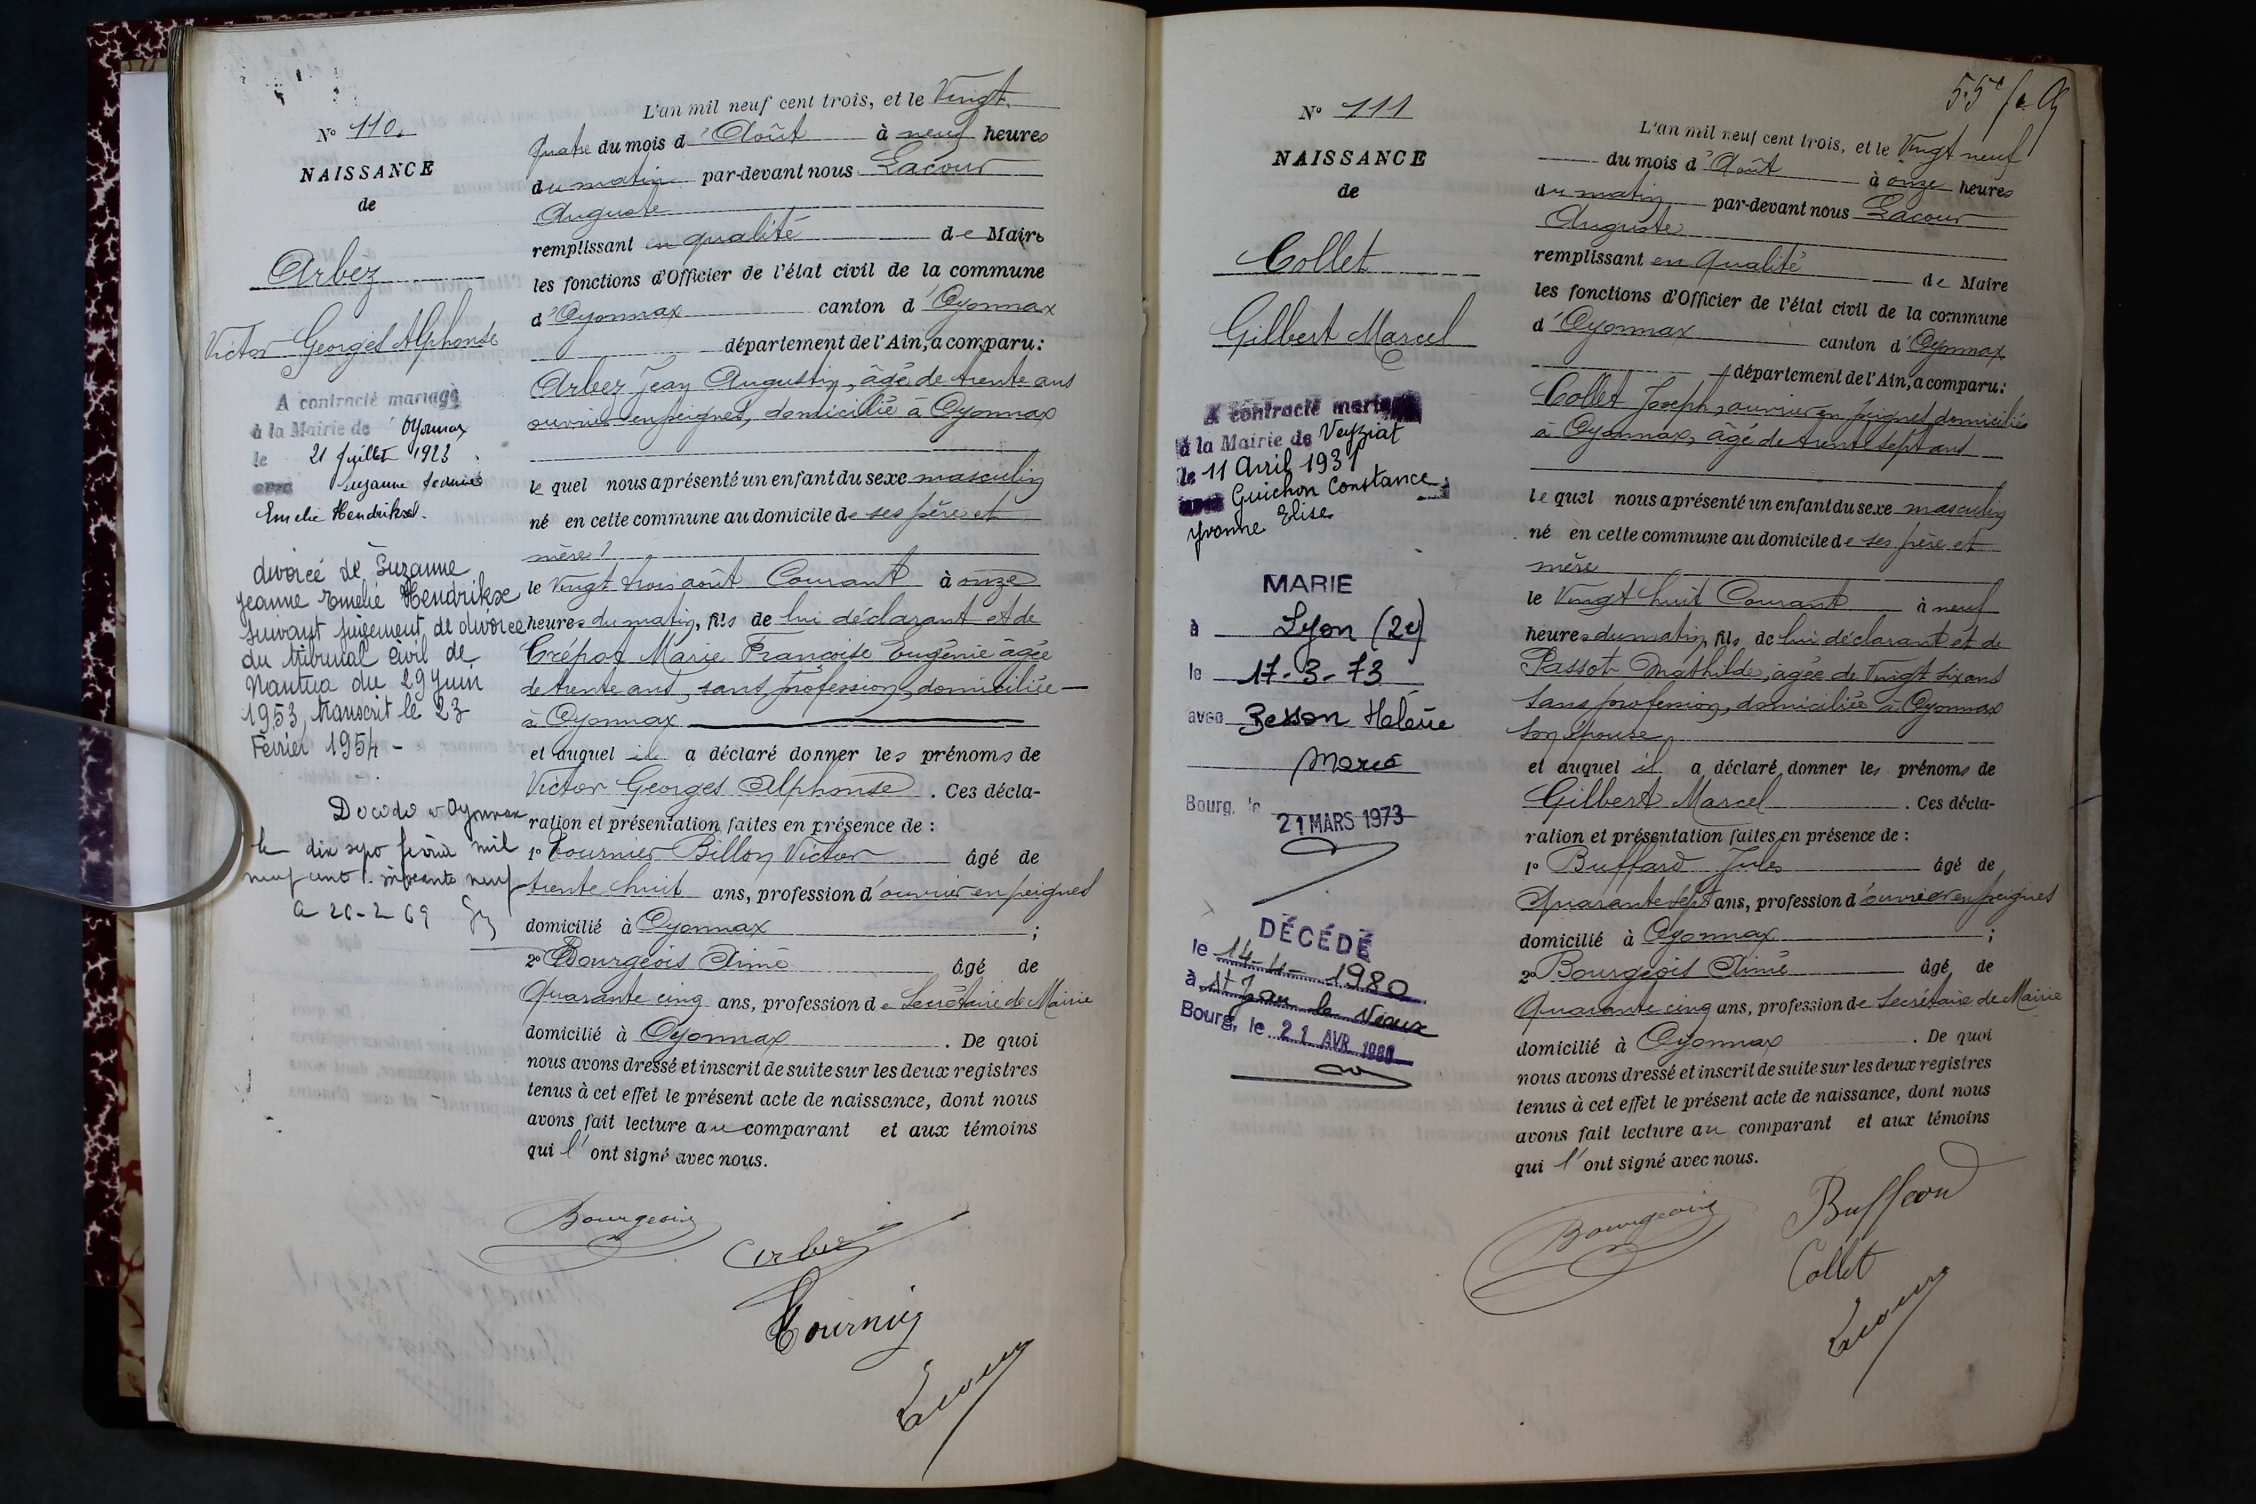 N° 110.
NAISSANCE
de
Arbez
Victor Georges Alphonse
A contracté mariage
à la Mairie de Oyonnax
le 21 Juillet 1923
avec Suzanne Jeanne
Emelie Hendrikse.
divorcé de Suzanne
Jeanne Emelie Hendrikse
suivant jugement de divorce
du tribunal civil de
Nantua du 29 Juin
1953, transcrit le 23
Février 1954 -
Décédé à Oyonnax
le dix sept février mil
neuf cent soixante neuf
a 26-2 69
L'an mil neuf cent trois, et le Vingt
quatre du mois d'Août à neuf heures
du matin par-devant nous Lacour
Auguste
remplissant en qualité de Maire
les fonctions d'Officier de l'état civil de la commune
d'Oyonnax canton d'Oyonnax
département de l'Ain, a comparu:
Arbez Jean Augustin, âgé de trente ans
ouvrier en peignes, domicilié à Oyonnax
le quel nous a présenté un enfant du sexe masculin
né en cette commune au domicile de ses père et
mère
le Vingt trois août Courant à onze
heures du matin, fils de lui déclarant et de
Crépot Marie Françoise Eugénie âgée
de trente ans, sans profession, domiciliée
à Oyonnax
et auquel il a déclaré donner les prénoms de
Victor Georges Alphonse. Ces décla-
ration et présentation faites en présence de :
1° Tournier Billon Victor âgé de
trente huit ans, profession d'ouvrier en peignes
domicilié à Oyonnax ;
2° Bourgeois Aimé âgé de
Quarante cinq ans, profession de Secrétaire de Mairie
domicilié à Oyonnax. De quoi
nous avons dressé et inscrit de suite sur les deux registres
tenus à cet effet le présent acte de naissance, dont nous
avons fait lecture au comparant et aux témoins
qui l'ont signé avec nous.
Bourgeois
Arbez
Tournier
Lacour
55e
N° 111
NAISSANCE
de
Collet
Gilbert Marcel
A contracté mariage
à la Mairie de Veyziat
le 11 Avril 1931
avec Guichon Constance
Yvonne Elise
MARIE
à Lyon (2e)
le 17-3-73
avec Besson Hélène
Maria
Bourg, le 21 MARS 1973
DÉCÉDÉ
le 14-4-1980
à St Jean le Vieux
Bourg, le 21 AVR 1980
L'an mil neuf cent trois, et le Vingt neuf
du mois d'Août à onze heures
du matin par-devant nous Lacour
Auguste
remplissant en qualité de Maire
les fonctions d'Officier de l'état civil de la commune
d'Oyonnax canton d'Oyonnax
département de l'Ain, a comparu:
Collet Joseph, ouvrier en peignes, domicilié
à Oyonnax, âgé de trente sept ans
le quel nous a présenté un enfant du sexe masculin
né en cette commune au domicile de ses père et
mère
le Vingt huit Courant à neuf
heures du matin, fils de lui déclarant et de
Passot Mathilde, âgée de Vingt six ans
sans profession, domiciliée à Oyonnax
son épouse
et auquel il a déclaré donner les prénoms de
Gilbert Marcel. Ces décla-
ration et présentation faites en présence de :
1° Buffard Jules âgé de
Quarante sept ans, profession d'ouvrier en peignes
domicilié à Oyonnax ;
2° Bourgeois Aimé âgé de
Quarante cinq ans, profession de Secrétaire de Mairie
domicilié à Oyonnax. De quoi
nous avons dressé et inscrit de suite sur les deux registres
tenus à cet effet le présent acte de naissance, dont nous
avons fait lecture au comparant et aux témoins
qui l'ont signé avec nous.
Bourgeois
Buffard
Collet
Lacour